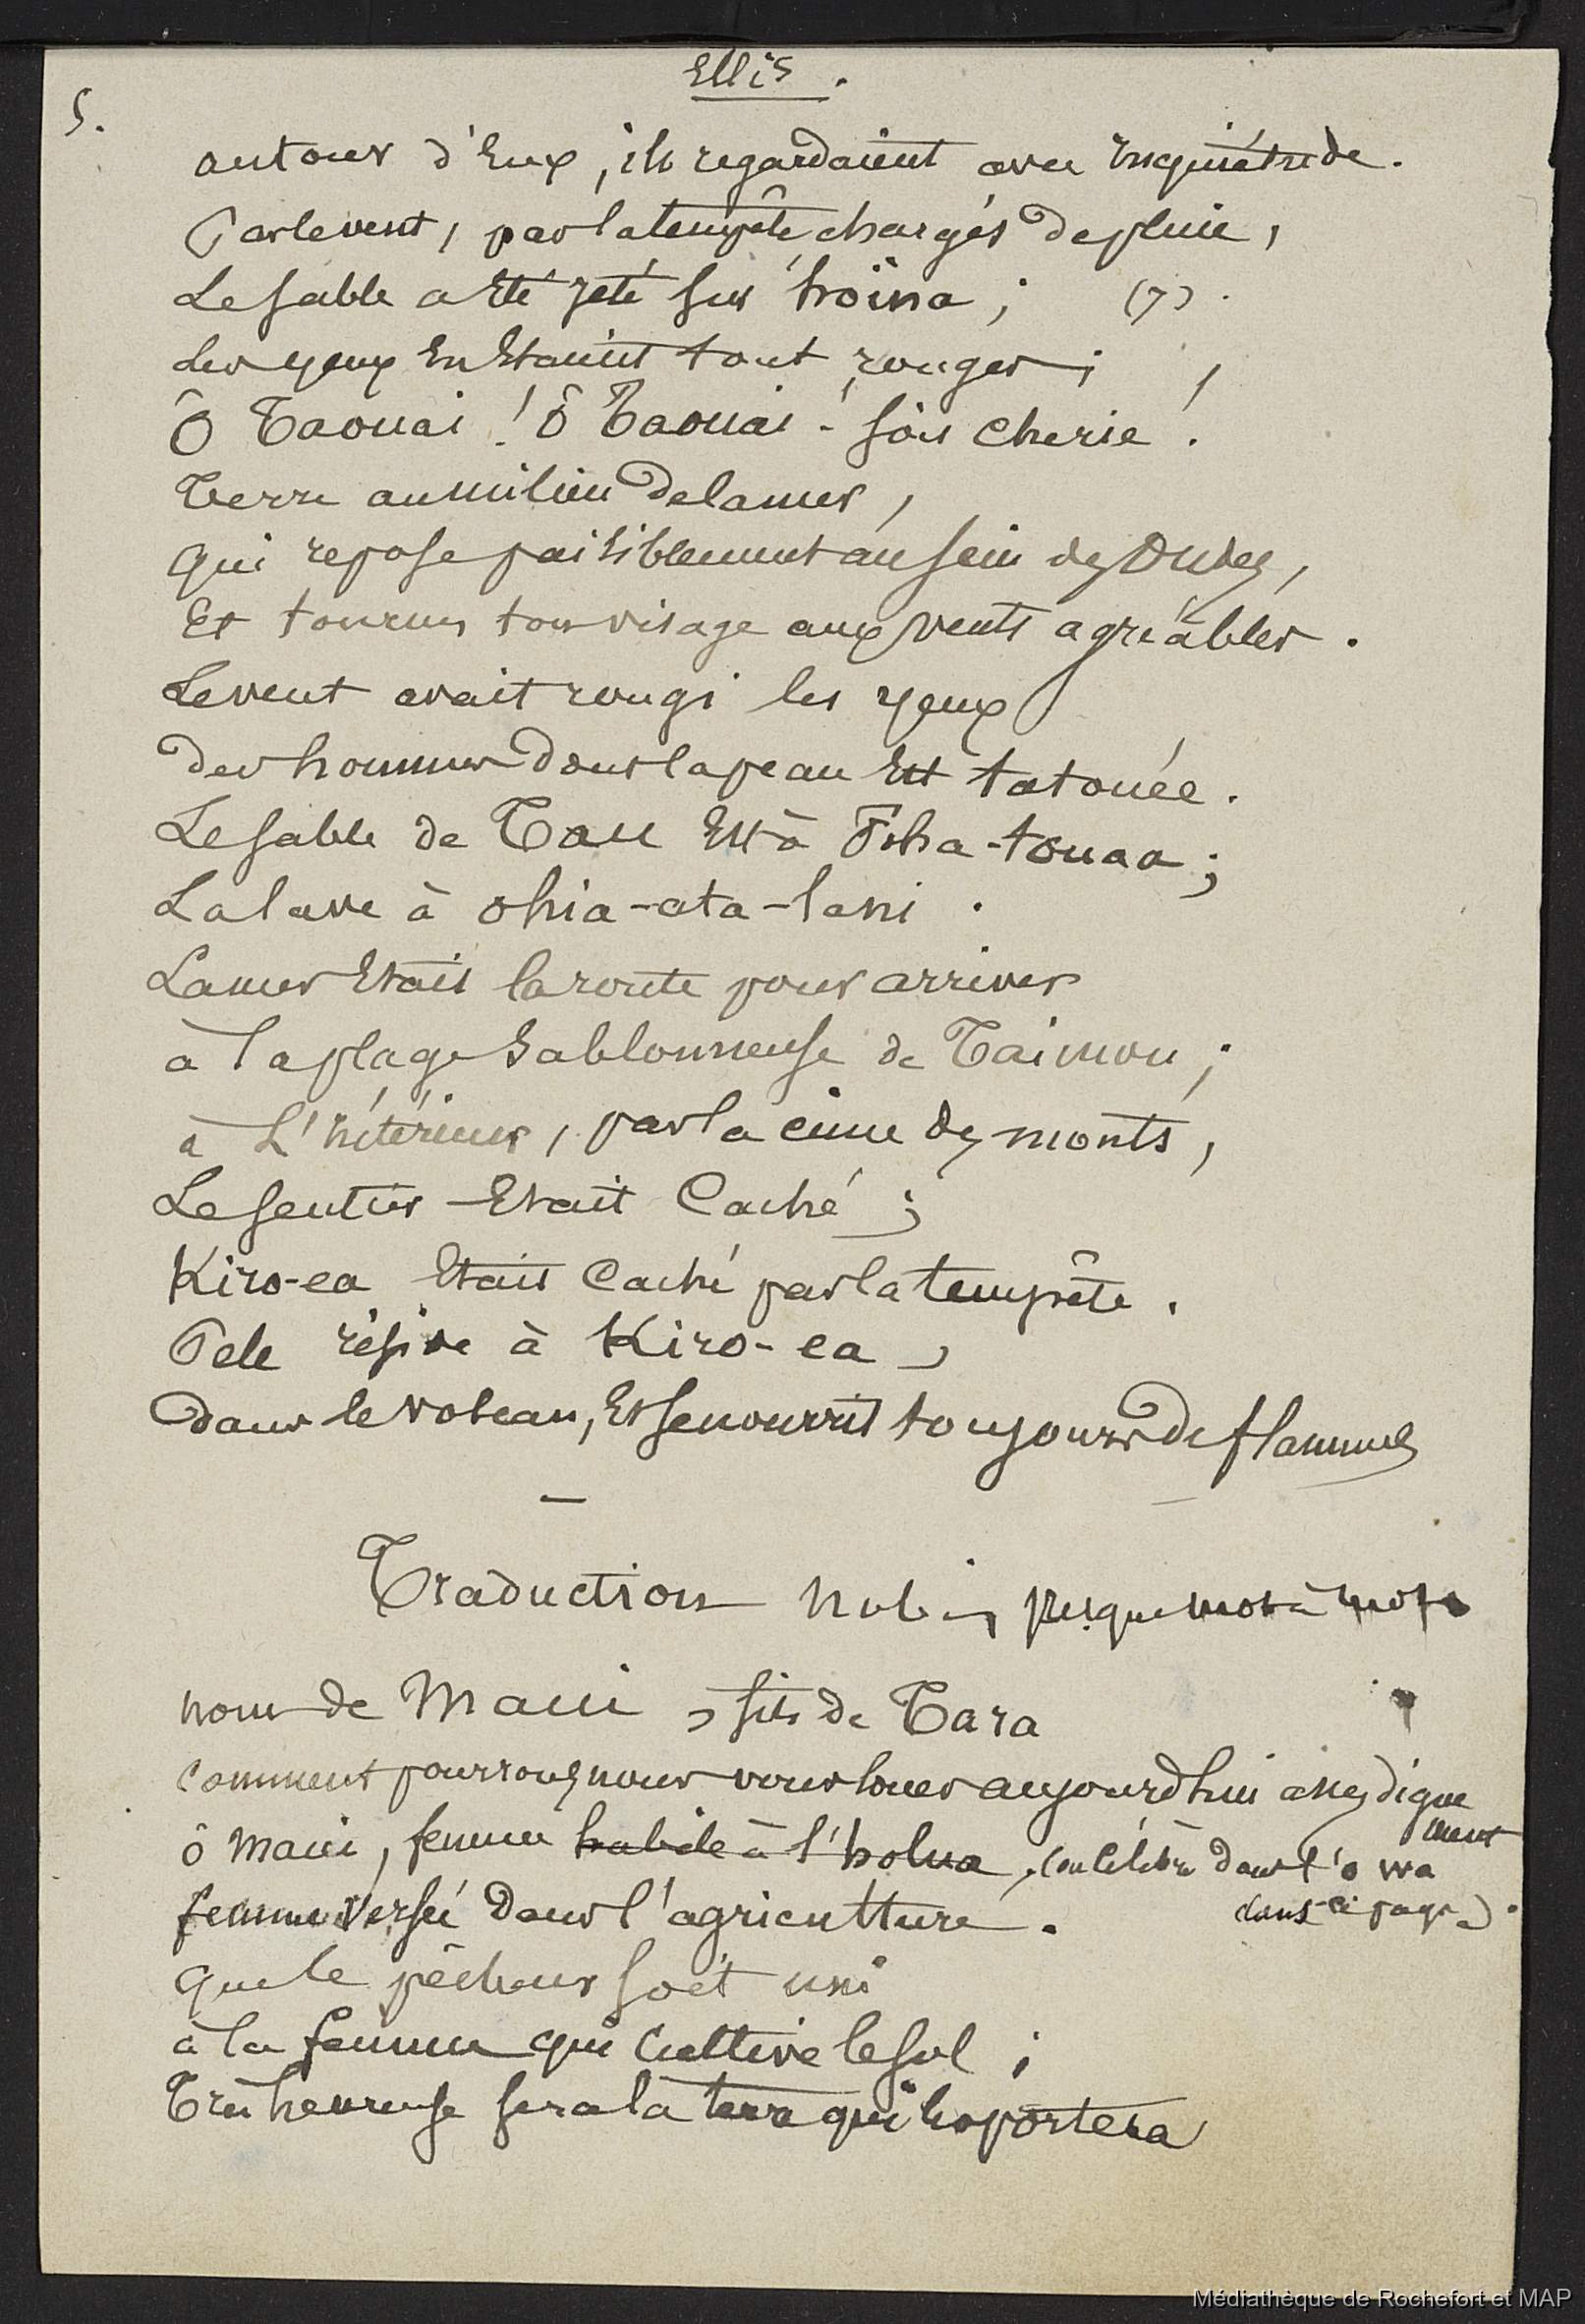 Ellis.
5.
autour d'Eux, ils regardaient avec Inquiétude.
Par le vent, par la tempête chargés de pluie,
Le sable a Eté jeté sur hoïna ; (7).
Les yeux En Etaient tout rouges ;
Ô Taouai ! ô Taouai ! sois cherie !
Terre au milieu de la mer,
qui repose paisiblement au sein des Ondes,
Et tournes ton visage aux vents agréables.
Le vent avait rougi les yeux
Des hommes Dont la peau Est tatouée.
Le sable de Tau Est à Poha-touaa ;
La lave à ohia-ota-lani.
La mer Etait la route pour arriver
à la plage Sablonneuse de Taimou ;
à L'intérieur, par la cime des monts,
Le sentier Etait Caché ;
Kiro-ea Etait Caché par la tempête.
Pele réside à Kiro-ea,
Dans le volcan, Et se nourrit toujours de flammes
Traduction presque mot à mot
nom de Maui, fils de Tara
Comment pourrons nous vous louer aujourd'hui assez digne
ment
ô Maui, femme habile à l'holua, (ou célèbre dans l'o wa
femme versée Dans l'agriculture. dans ci page).
que le pêcheur soit uni
à la femme qui Cultive le sol ;
Très heureuse sera la terre qui les portera
Médiathèque de Rochefort et MAP